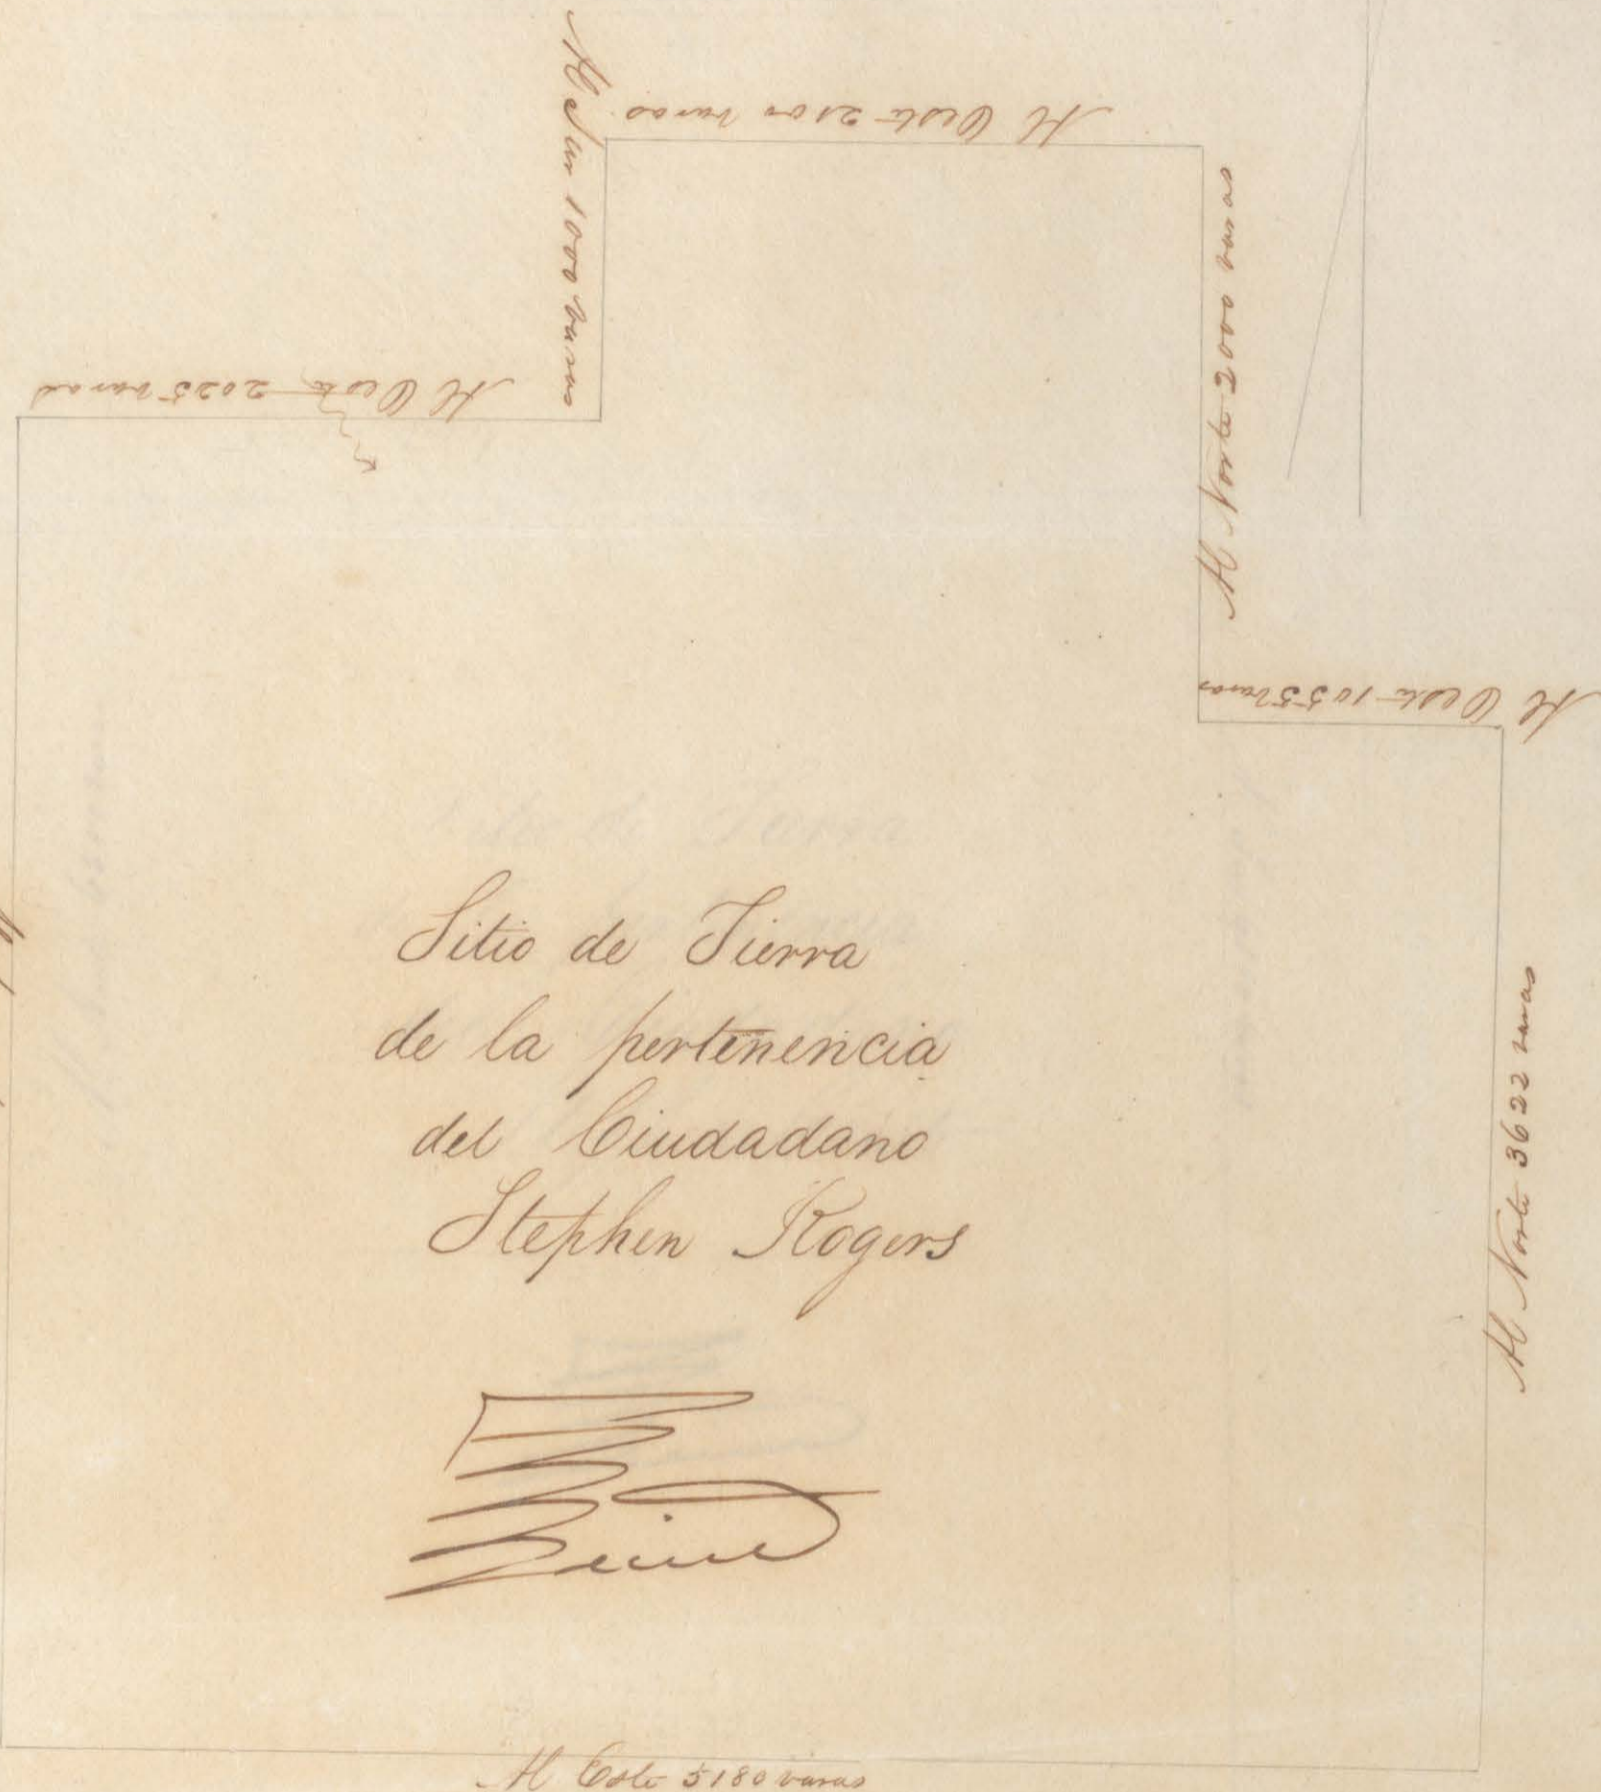 Al Oeste 2100 varas
Al Sur 1000 varas
Al Norte 2000 varas
Al Oeste 2025 varas
Al Oeste 1055 varas
Sitio de Tierra
de la pertenencia
del Ciudadano
Stephen Rogers
Al Norte 3622 varas
Al Este 5180 varas